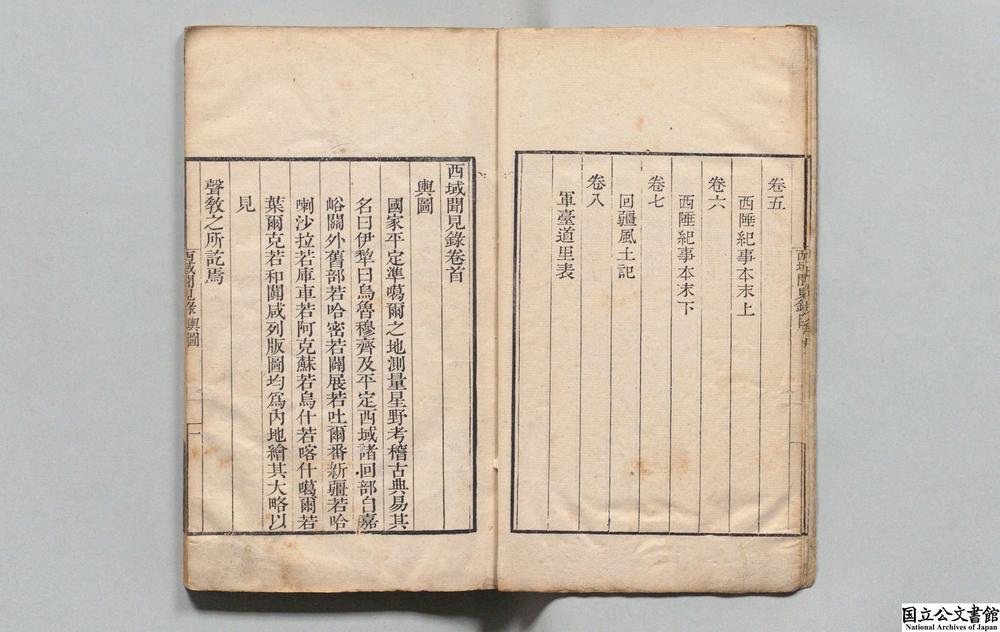 卷五
西陲紀事本末上
卷六
西陲紀事本末下
卷七
回疆風土記
卷八
軍臺道里表
西域聞見錄卷首
輿圖
國家平定準噶爾之地測量星野考稽古典易其
名曰伊犂曰烏魯穆齊及平定西域諸回部自嘉
峪關外舊部若哈密若闢展若吐爾番新疆若哈
喇沙拉若庫車若阿克蘇若烏什若喀什噶爾若
葉爾克若和闐咸列版圖均爲内地繪其大略以
見
聲敎之所訖焉
西域聞見錄 輿圖
一
国立公文書館
National Archives of Japan